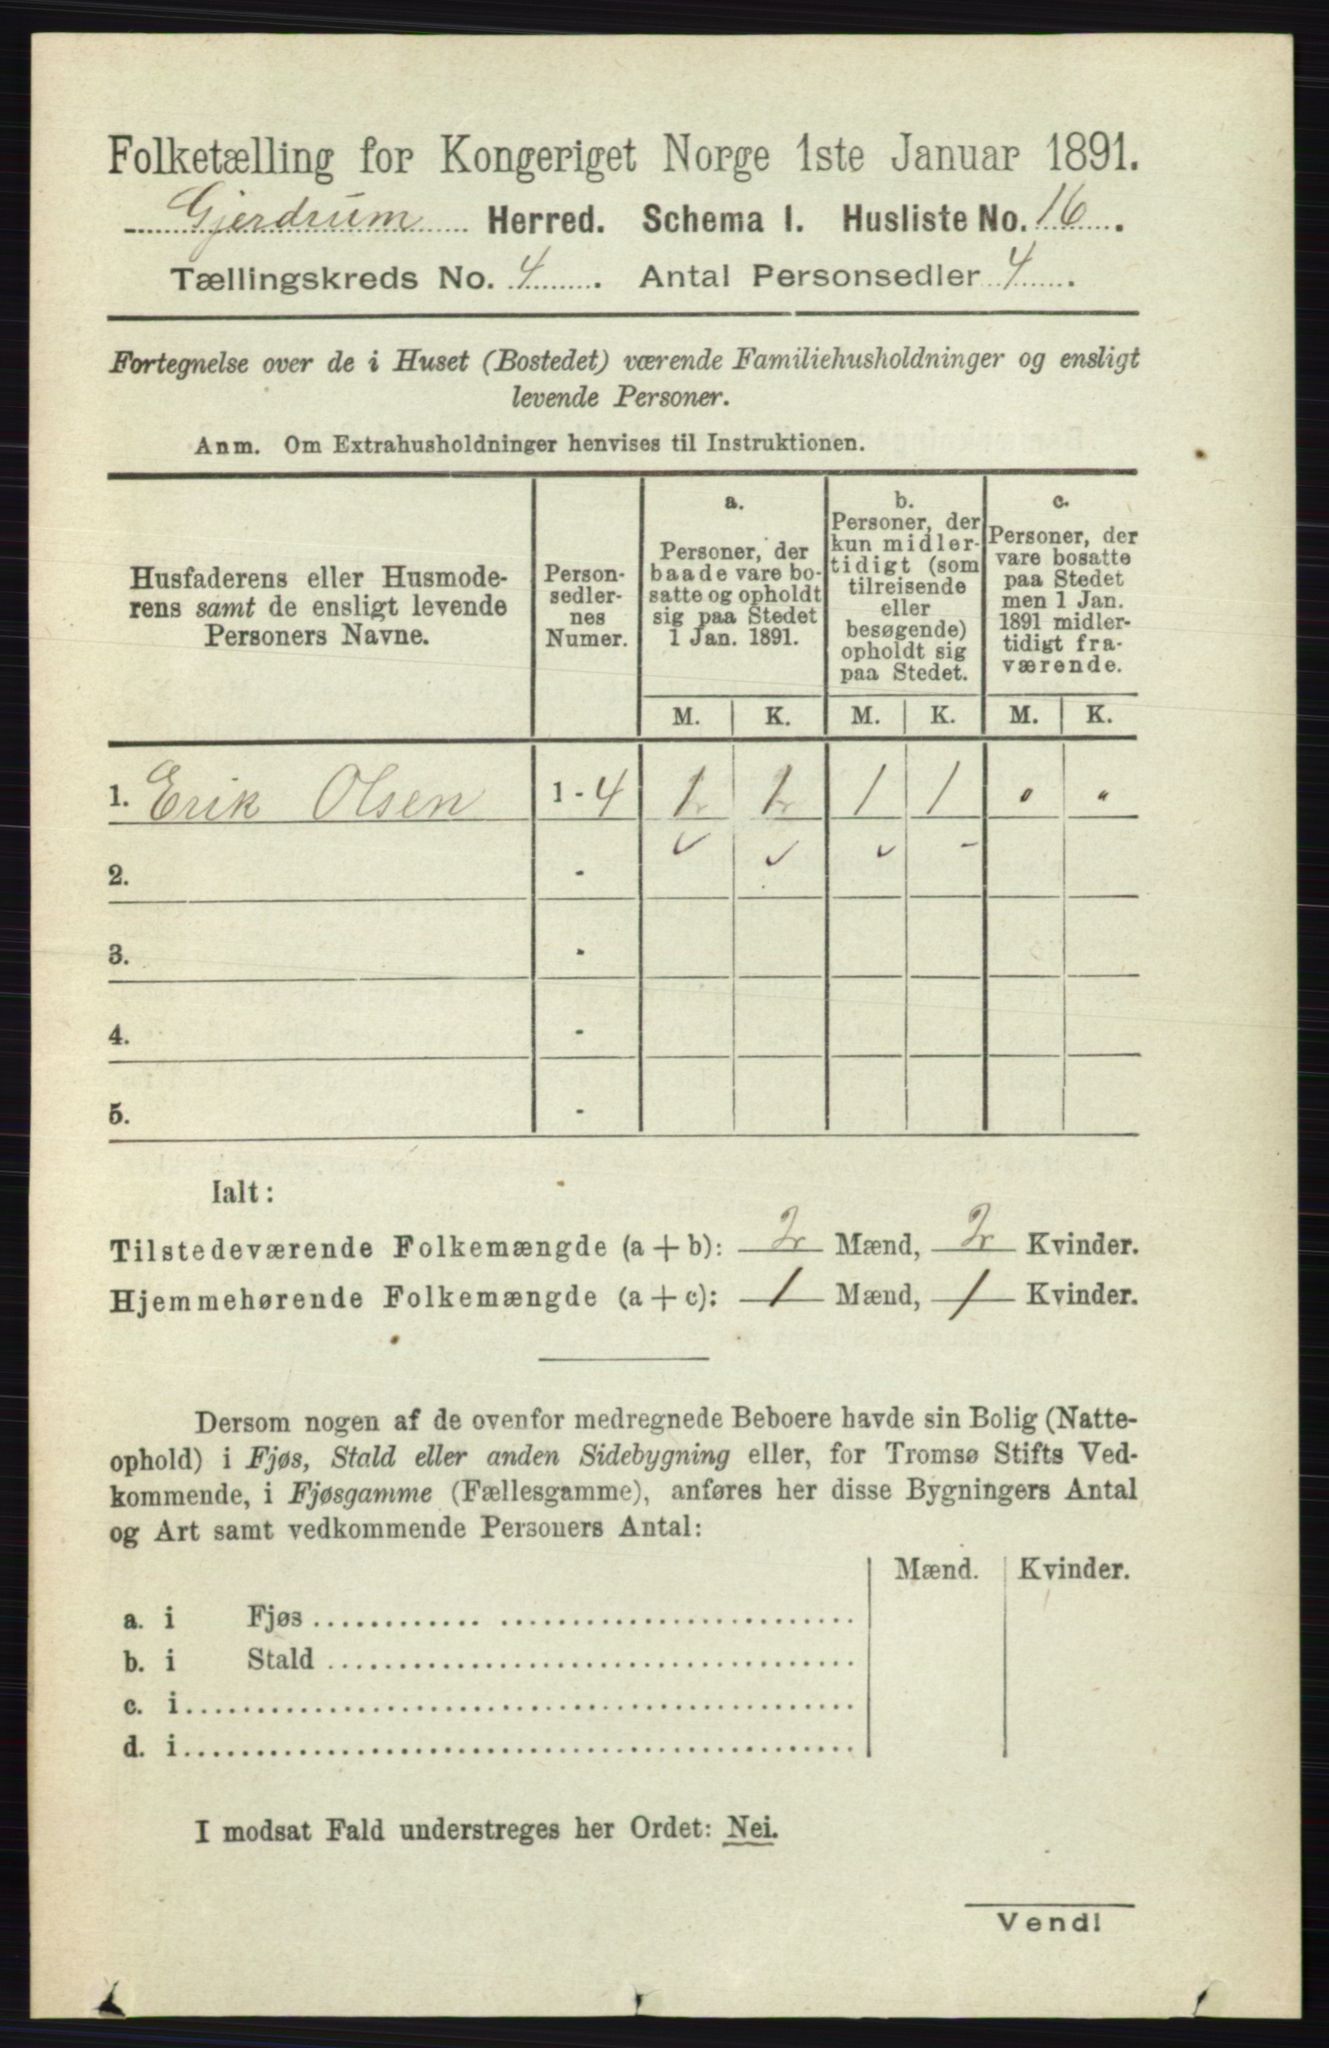 Folketælling for Kongeriget Norge 1ste Januar 1891.
Gjerdrum Herred. Schema I. Husliste No. 16.
Tællingskreds No. 4. Antal Personsedler 4.
Fortegnelse over de i Huset (Bostedet) værende Familiehusholdninger og ensligt
levende Personer.
Anm. Om Extrahusholdninger henvises til Instruktionen.
Husfaderens eller Husmode-
rens samt de ensligt levende
Personers Navne.
Person-
sedler-
nes
Numer.
a.
Personer, der
baade vare bo-
satte og opholdt
sig paa Stedet
1 Jan. 1891.
b.
Personer, der
kun midler-
tidigt (som
tilreisende
eller
besøgende)
opholdt sig
paa Stedet.
c.
Personer, der
vare bosatte
paa Stedet
men 1 Jan.
1891 midler-
tidigt fra-
værende.
M. K. M. K. M. K.
1. Erik Olsen 1 - 4 1 1 1 1
2. -
3. -
4. -
5. -
Ialt:
Tilstedeværende Folkemængde (a + b): 2 Mænd, 2 Kvinder.
Hjemmehørende Folkemængde (a + c): 1 Mænd, 1 Kvinder.
Dersom nogen af de ovenfor medregnede Beboere havde sin Bolig (Natte-
ophold) i Fjøs, Stald eller anden Sidebygning eller, for Tromsø Stifts Ved-
kommende, i Fjøsgamme (Fællesgamme), anføres her disse Bygningers Antal
og Art samt vedkommende Personers Antal:
Mænd. Kvinder.
a. i Fjøs
b. i Stald
c. i
d. i
I modsat Fald understreges her Ordet: Nei.
Vend!